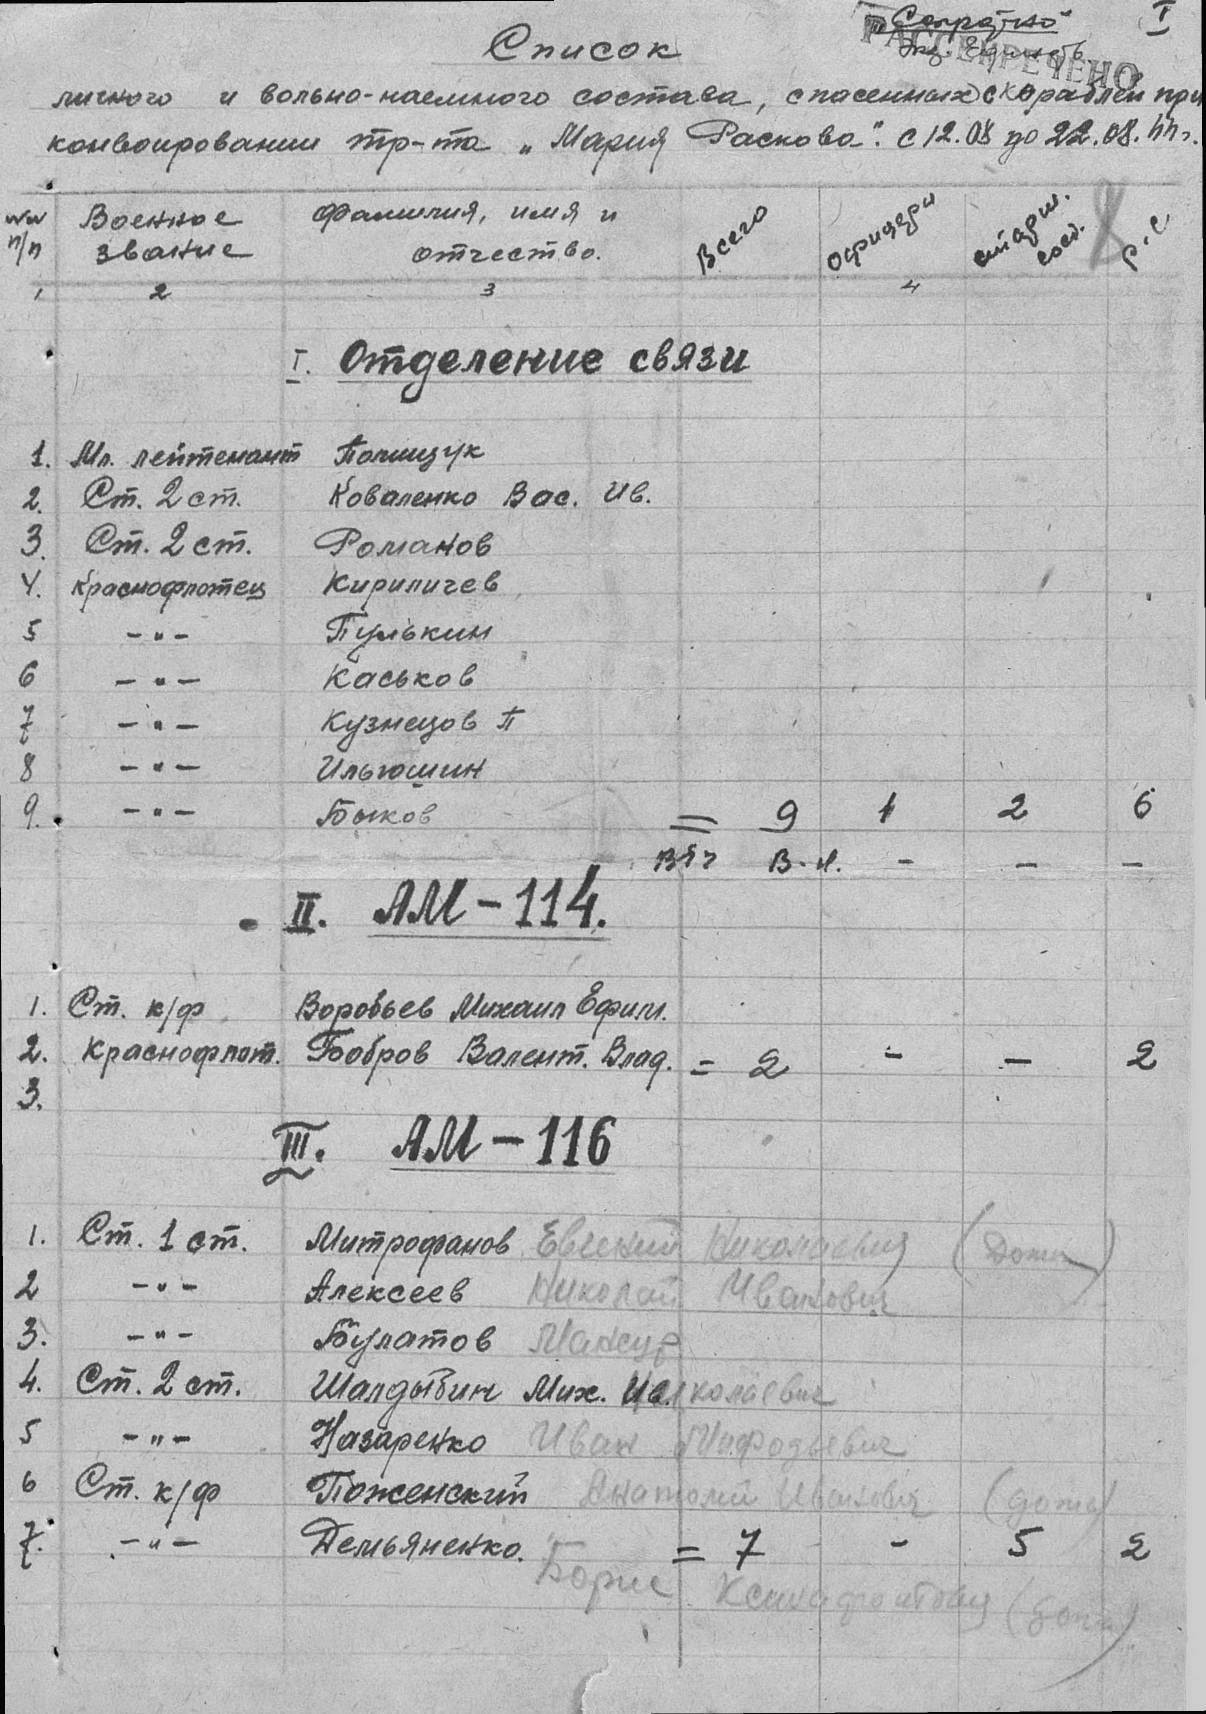 "Секретно" I
Экз. Единств.
РАССЕКРЕЧЕНО
Список
личного и вольно-наемного состава, спасенных с кораблей при
конвоировании тр-та "Мария Раскова". с 12.08 до 22.08.44 г.
№№ п/п Военное звание Фамилия, имя и отчество. Всего Офицеры старш. сост. р.с.
1 2 3 4
I. Отделение связи
1. Мл. лейтенант Полищук
2. Ст. 2 ст. Коваленко Вас. Ив.
3. Ст. 2 ст. Романов
4. Краснофлотец Кириличев
5 -"- Пулькин
6 -"- Каськов
7 -"- Кузнецов П
8 -"- Ильюшин
9. -"- Быков = 9 1 2 6
В/ч В-н. - - -
II. АМ-114.
1. Ст. к/ф Воробьев Михаил Ефим.
2. Краснофлот. Бобров Валент. Влад. = 2 - - 2
3.
III. АМ-116
1. Ст. 1 ст. Митрофанов Евгений Николаевич (Дома)
2 -"- Алексеев Николай Иванович
3. -"- Булатов Мансур
4. Ст. 2 ст. Шалдыбин Мих. Николаевич
5 -"- Назаренко Иван Мифодьевич
6 Ст. к/ф Поженский Анатолий Иванович (дома)
7. -"- Демьяненко. = 7 - 5 2
Борис Ксенофонтович (дома)